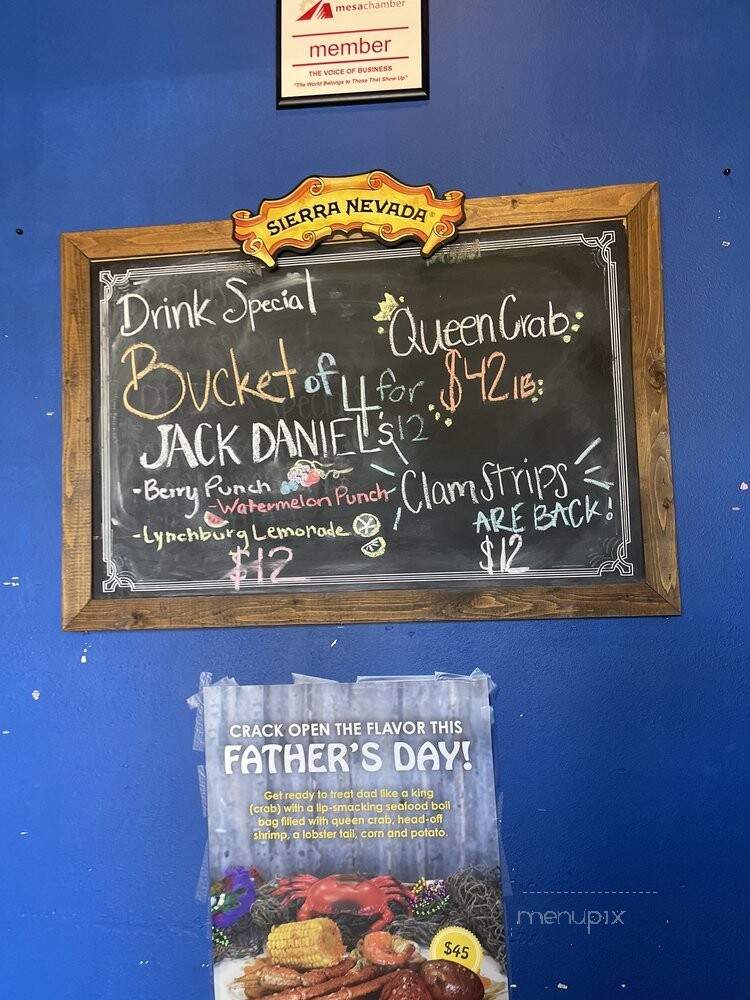 mesachamber
member
THE VOICE OF BUSINESS
"The World Belongs to Those That Show Up"
SIERRA NEVADA®
Drink Special
Bucket of 4 for
JACK DANIEL's 12
-Berry Punch
-Watermelon Punch
-Lynchburg Lemonade
$12
Queen Crab
$42 lB
Clam Strips
ARE BACK!
$12
CRACK OPEN THE FLAVOR THIS
FATHER'S DAY!
Get ready to treat dad like a king
(crab) with a lip-smacking seafood boil
bag filled with queen crab, head-off
shrimp, a lobster tail, corn and potato.
$45
menupix